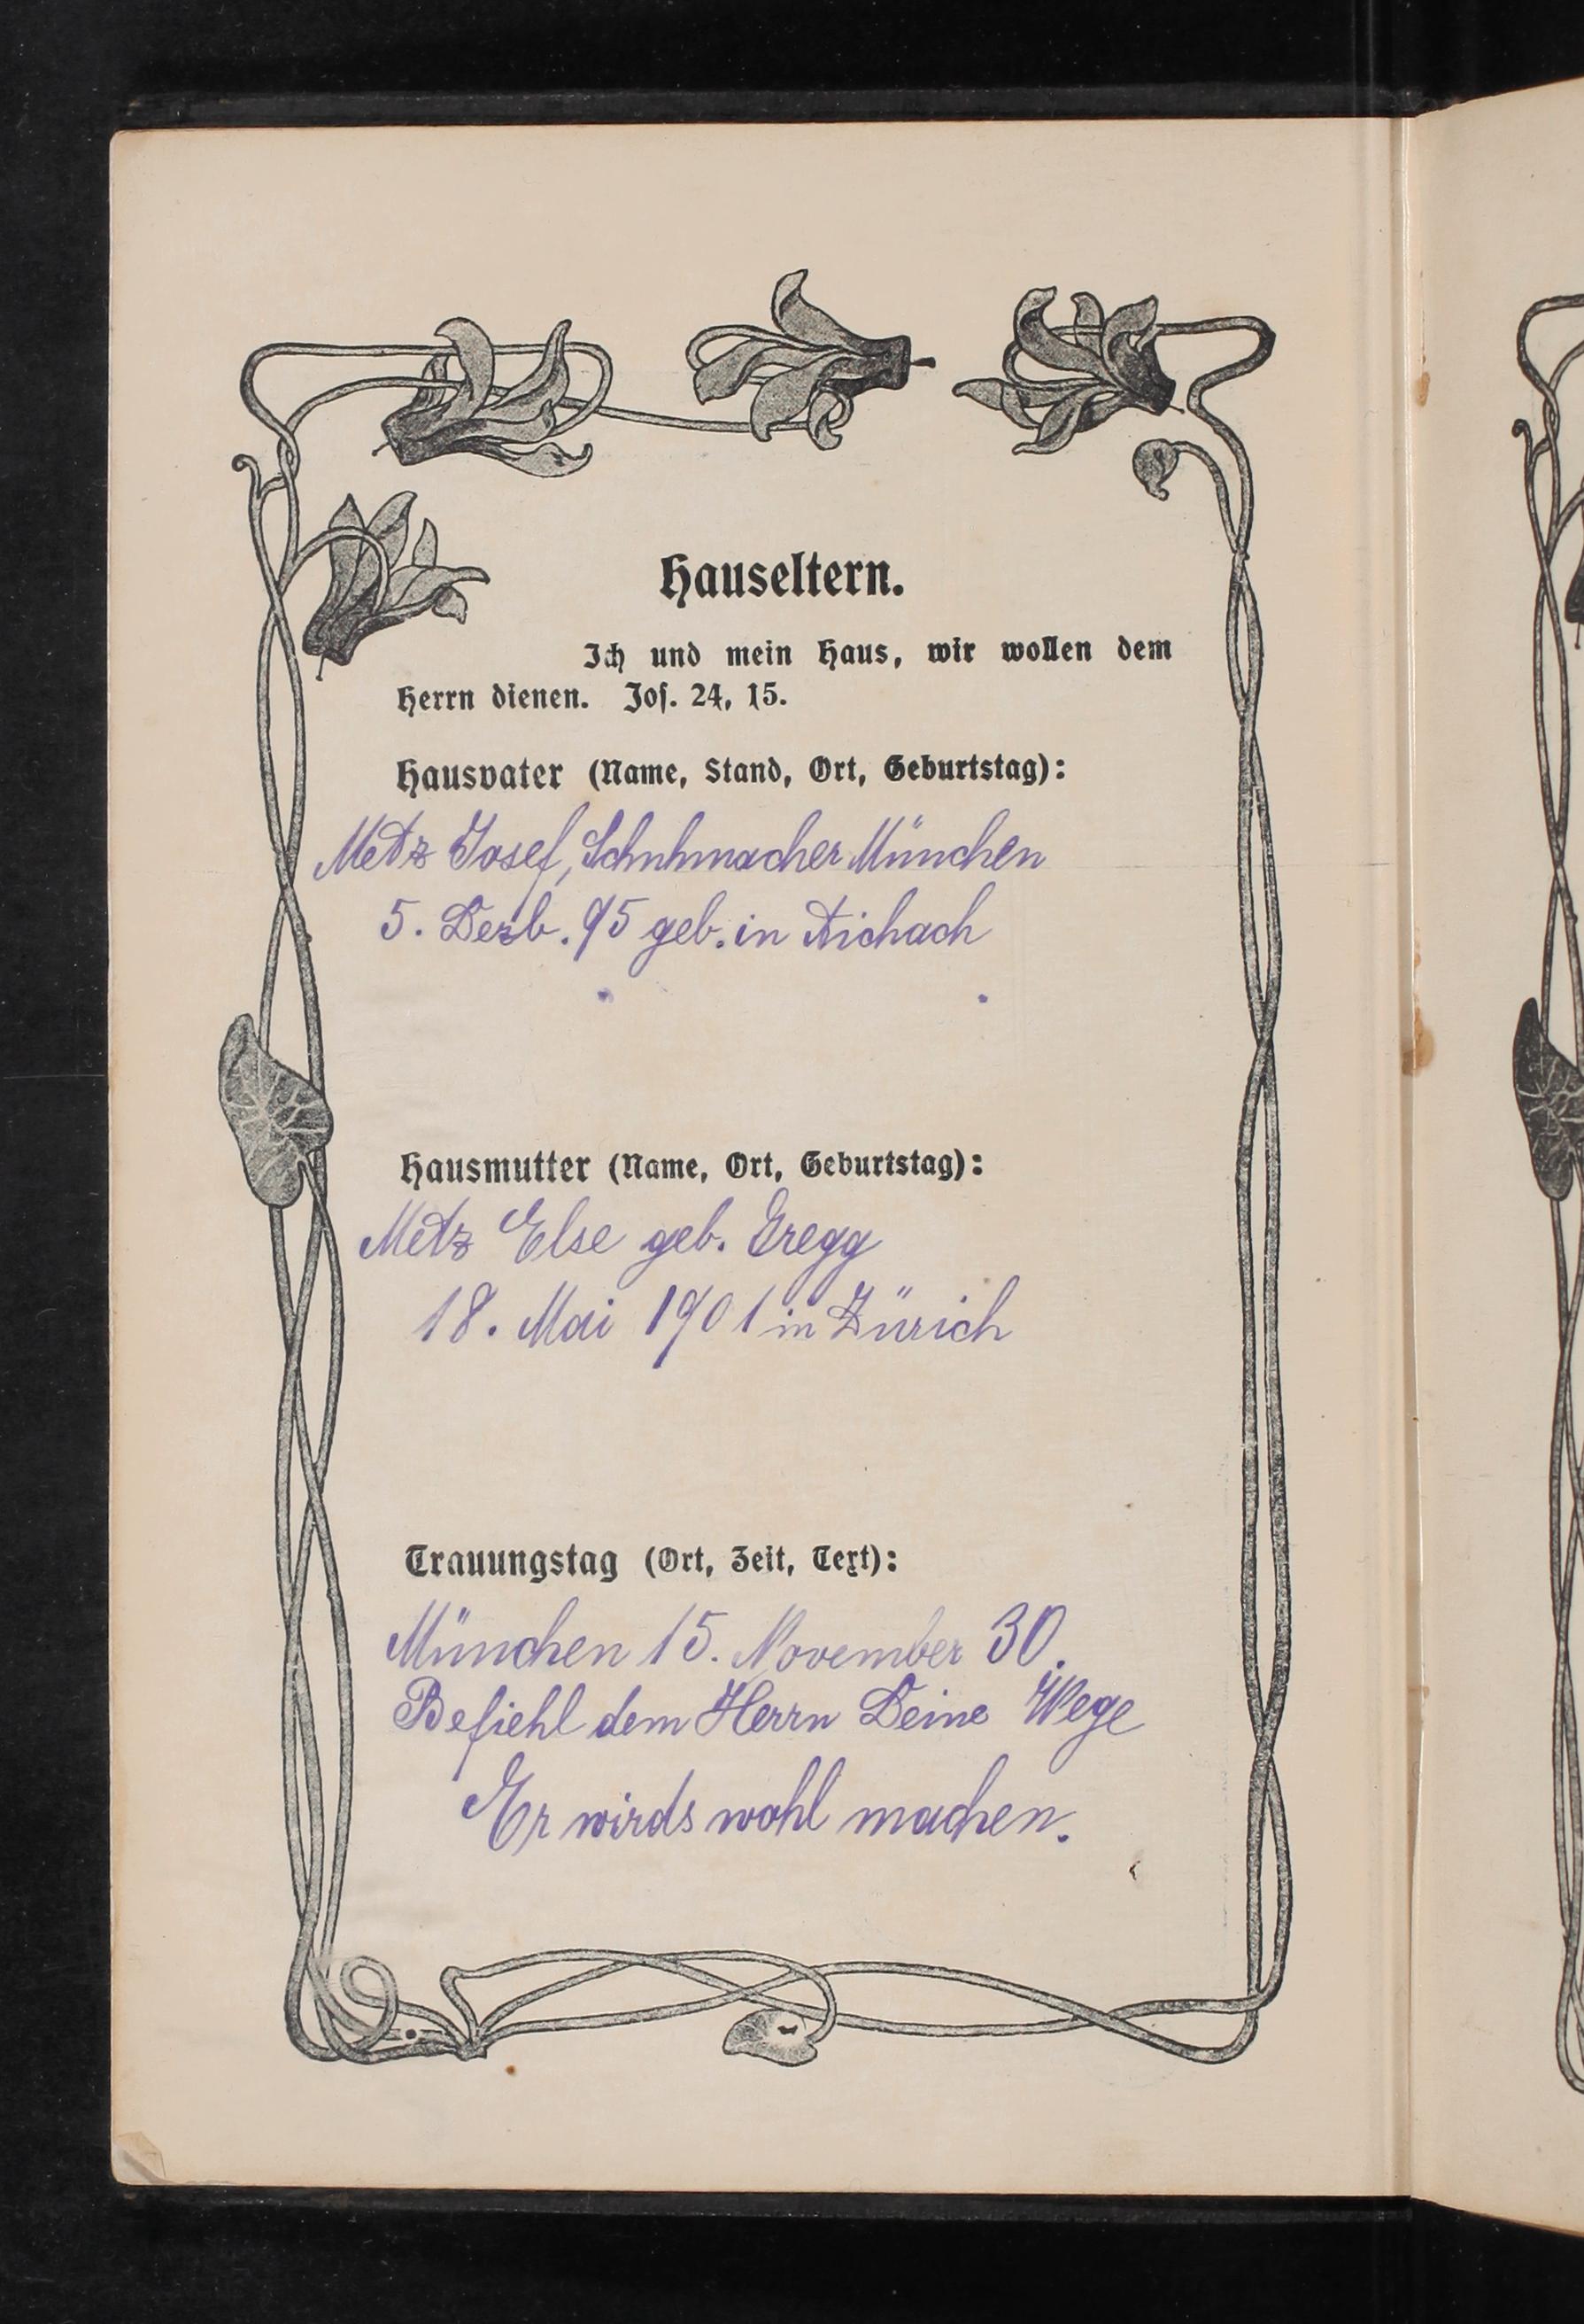 Hauseltern.
Ich und mein Haus, wir wollen dem
Herrn dienen. Jos. 24, 15.
Hausvater (Name, Stand, Ort, Geburtstag):
Metz Josef, Schuhmacher München
5. Dezb. 95 geb. in Aichach
Hausmutter (Name, Ort, Geburtstag):
Metz Else geb. Gregg
18. Mai 1901 in Zürich
Trauungstag (Ort, Zeit, Text):
München 15. November 30.
Befiehl dem Herrn Deine Wege
Er wirds wohl machen.